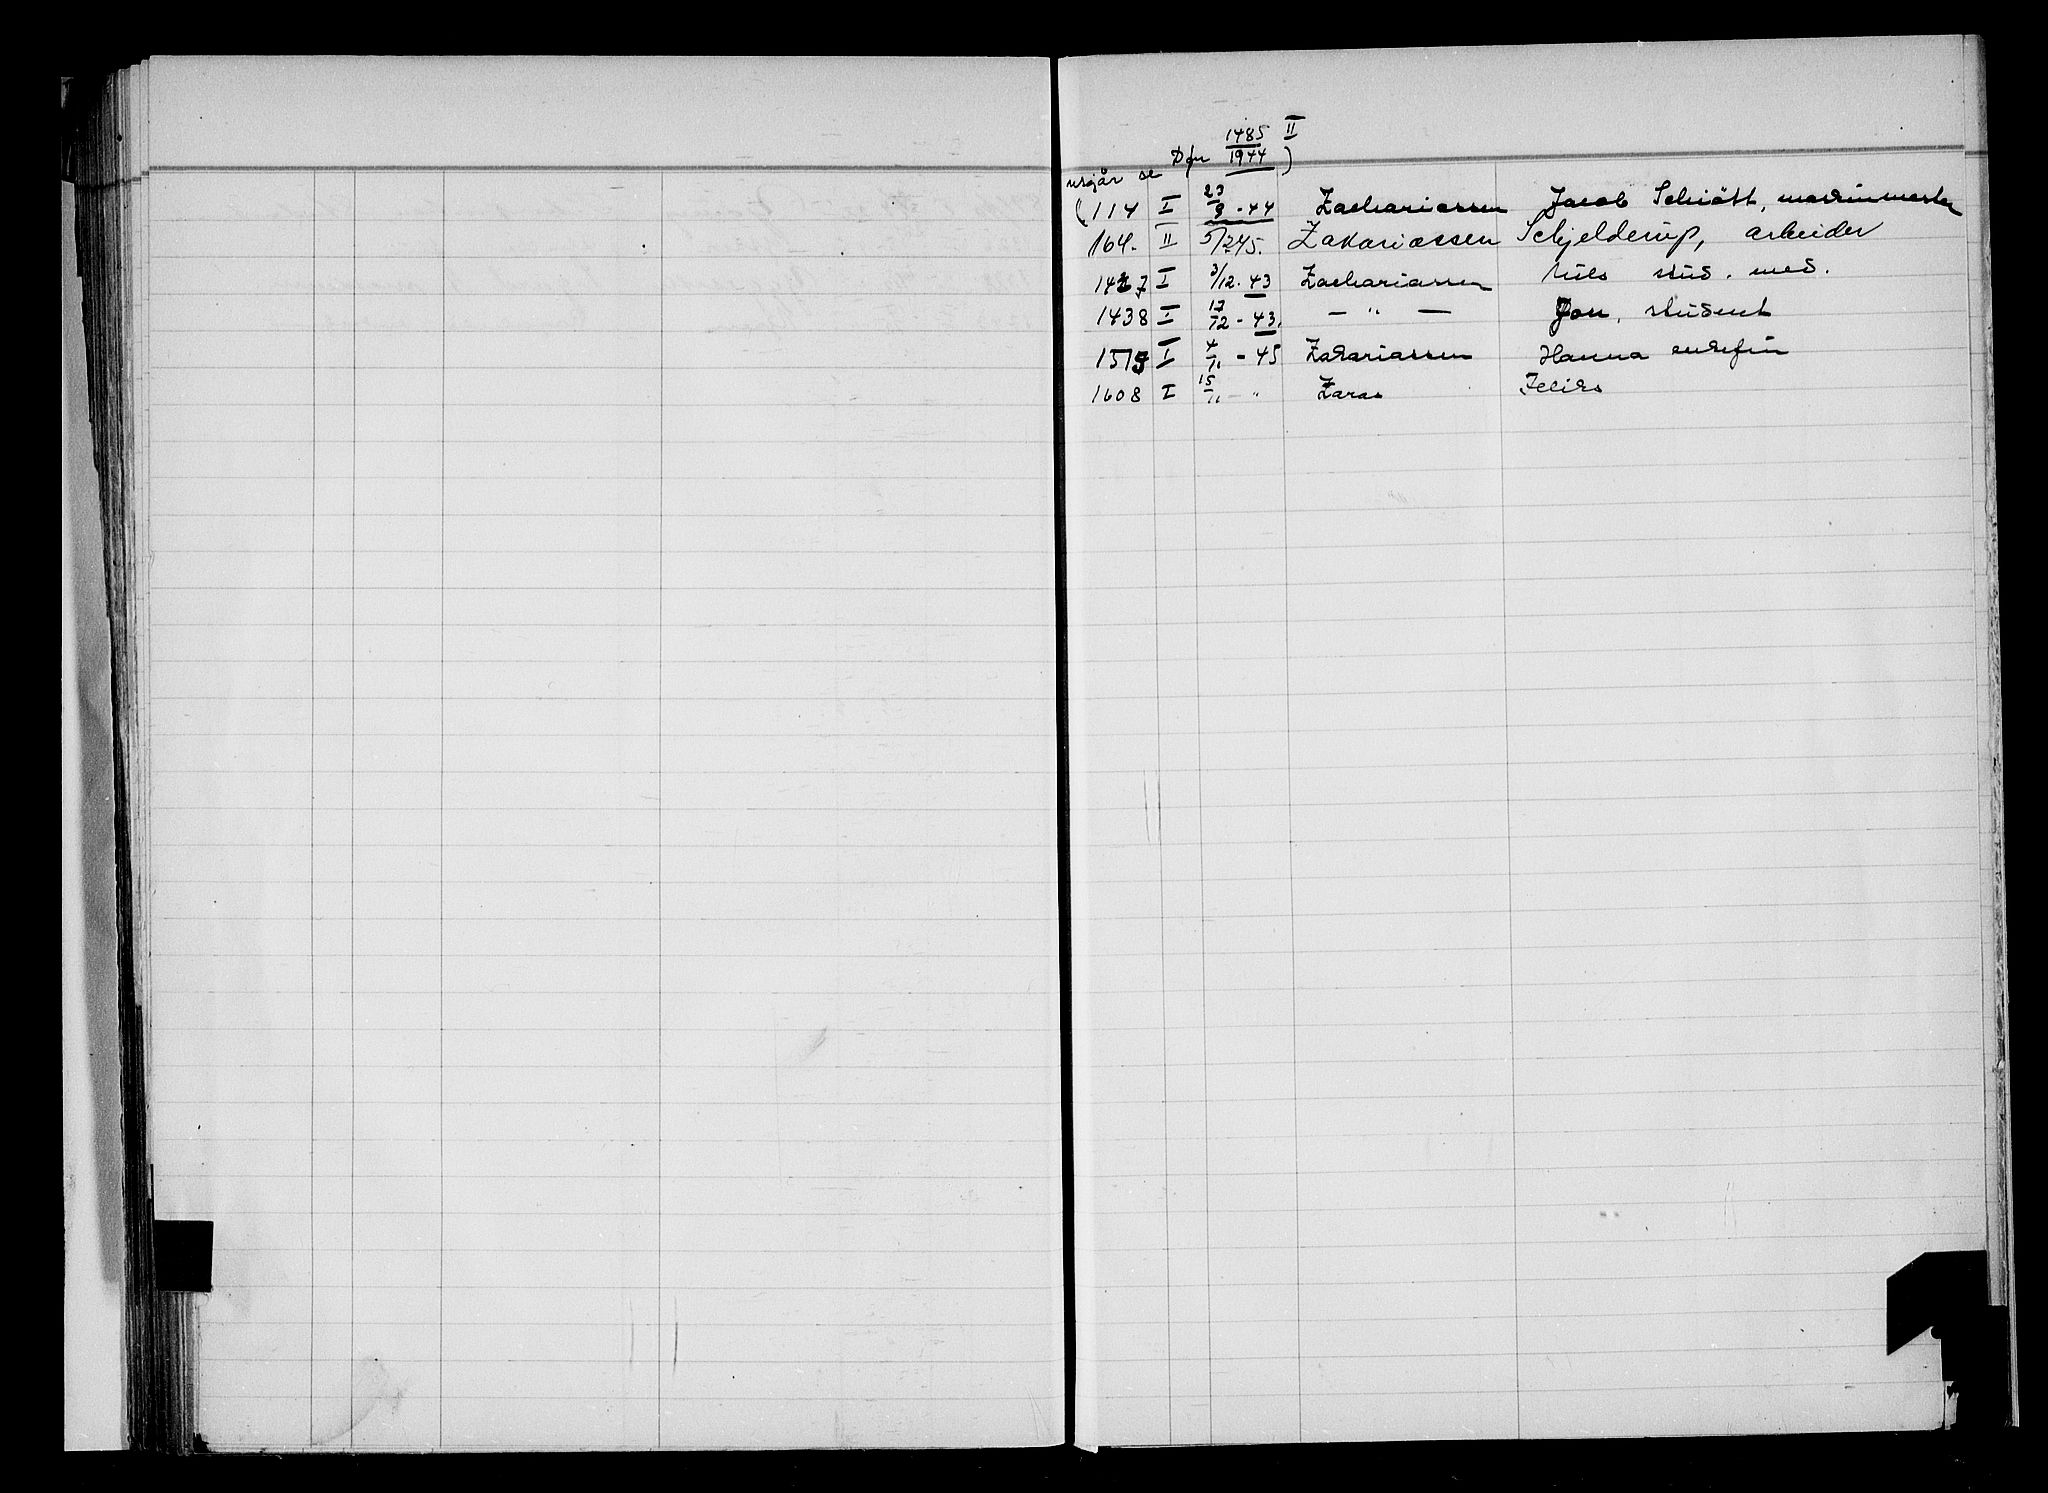 1485 II
utgår se Dfu 1944 )
( 114 I 23/9 - 44 Zachariassen Jacob Schiött, maskinmester
164. II 5/2 45. Zakariassen Schjelderup, arbeider
1427 I 3/12 - 43 Zachariassen Nils stud. med.
1438 I 17/12 - 43. — " — Jon, student
1515 I 4/11 - 45 Zakariassen Hanna enkefru
1608 I 15/11 - " Zaras